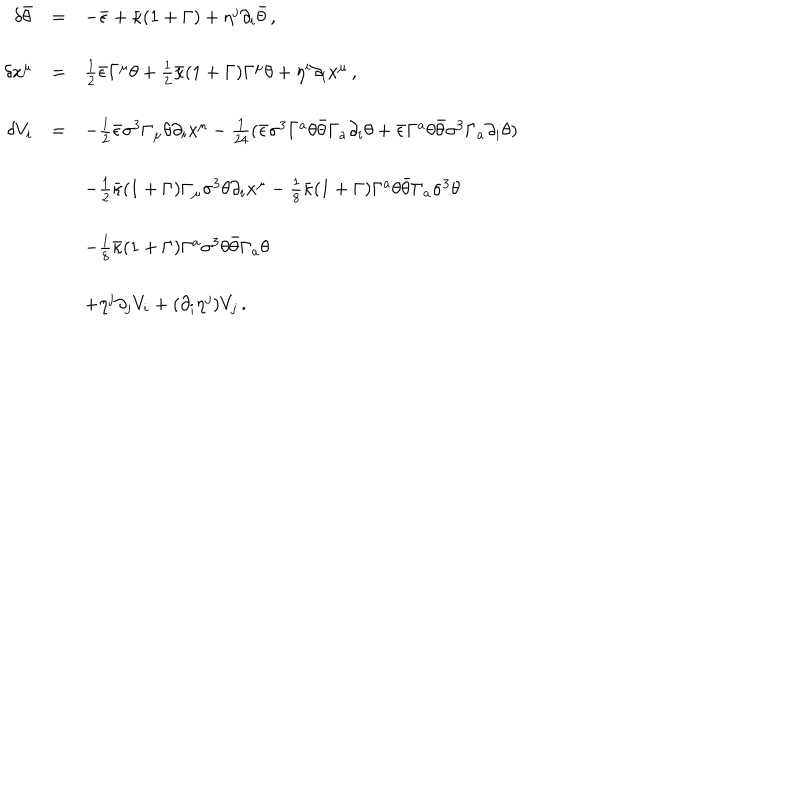 δθ̄ = −ε̄ + κ̄(1 + Γ) + η^j ∂_i θ̄ ,
δx^μ = \frac{1}{2} ε̄Γ^μ θ + \frac{1}{2} κ̄(1 + Γ)Γ^μ θ + η^i ∂_i x^μ ,
δV_i = −\frac{1}{2} ε̄σ^3 Γ_μ θ∂_i x^μ − \frac{1}{24} (ε̄σ^3 Γ^a θθ̄Γ_a ∂_i θ + ε̄Γ^a θθ̄σ^3 Γ_a ∂_i θ)
−\frac{1}{2} κ̄(1 + Γ)Γ_μ σ^3 θ∂_i x^μ − \frac{1}{8} κ̄(1 + Γ)Γ^a θθ̄Γ_a σ^3 θ
−\frac{1}{8} κ̄(1 + Γ)Γ^a σ^3 θθ̄Γ_a θ
+η^j ∂_j V_i + (∂_i η^j)V_j .